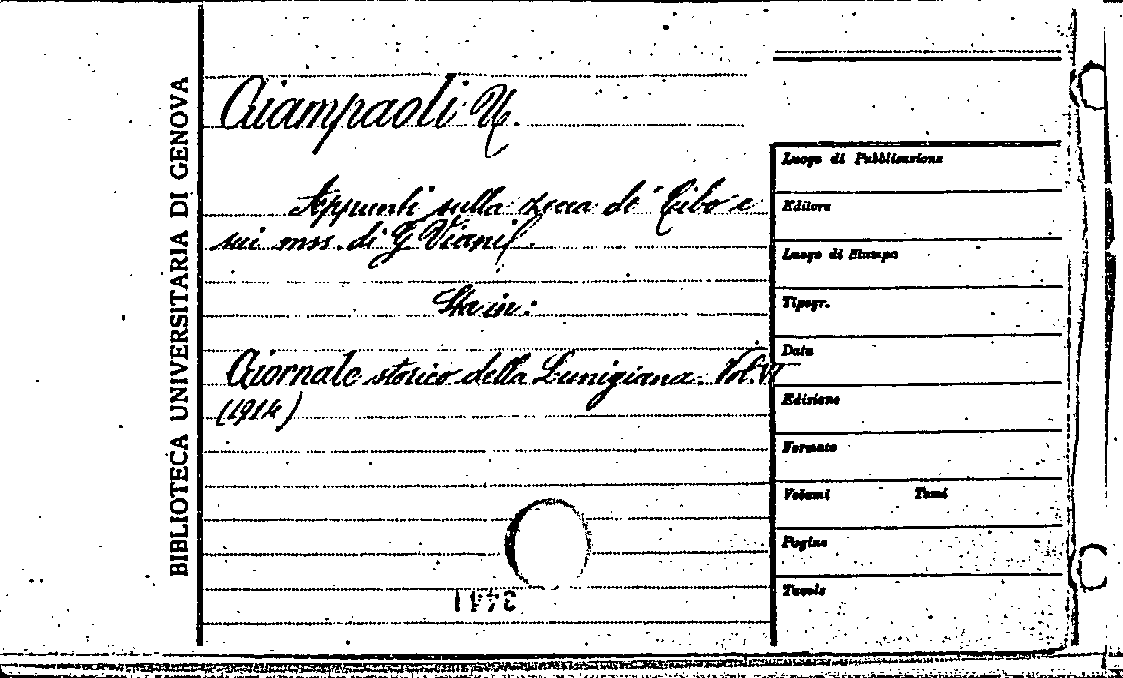 BIBLIOTECA UNIVERSITARIA DI GENOVA
Giampaoli U.
Appunti sulla zecca de' Cibo e
sui mss. di G Viani.
Sta in:
Giornale storico della Lunigiana. Vol. VI
(1914)
Luogo di Pubblicazione
Editore
Luogo di Stampa
Tipogr.
Data
Edizione
Formato
Volumi Tomi
Pagine
Tavole